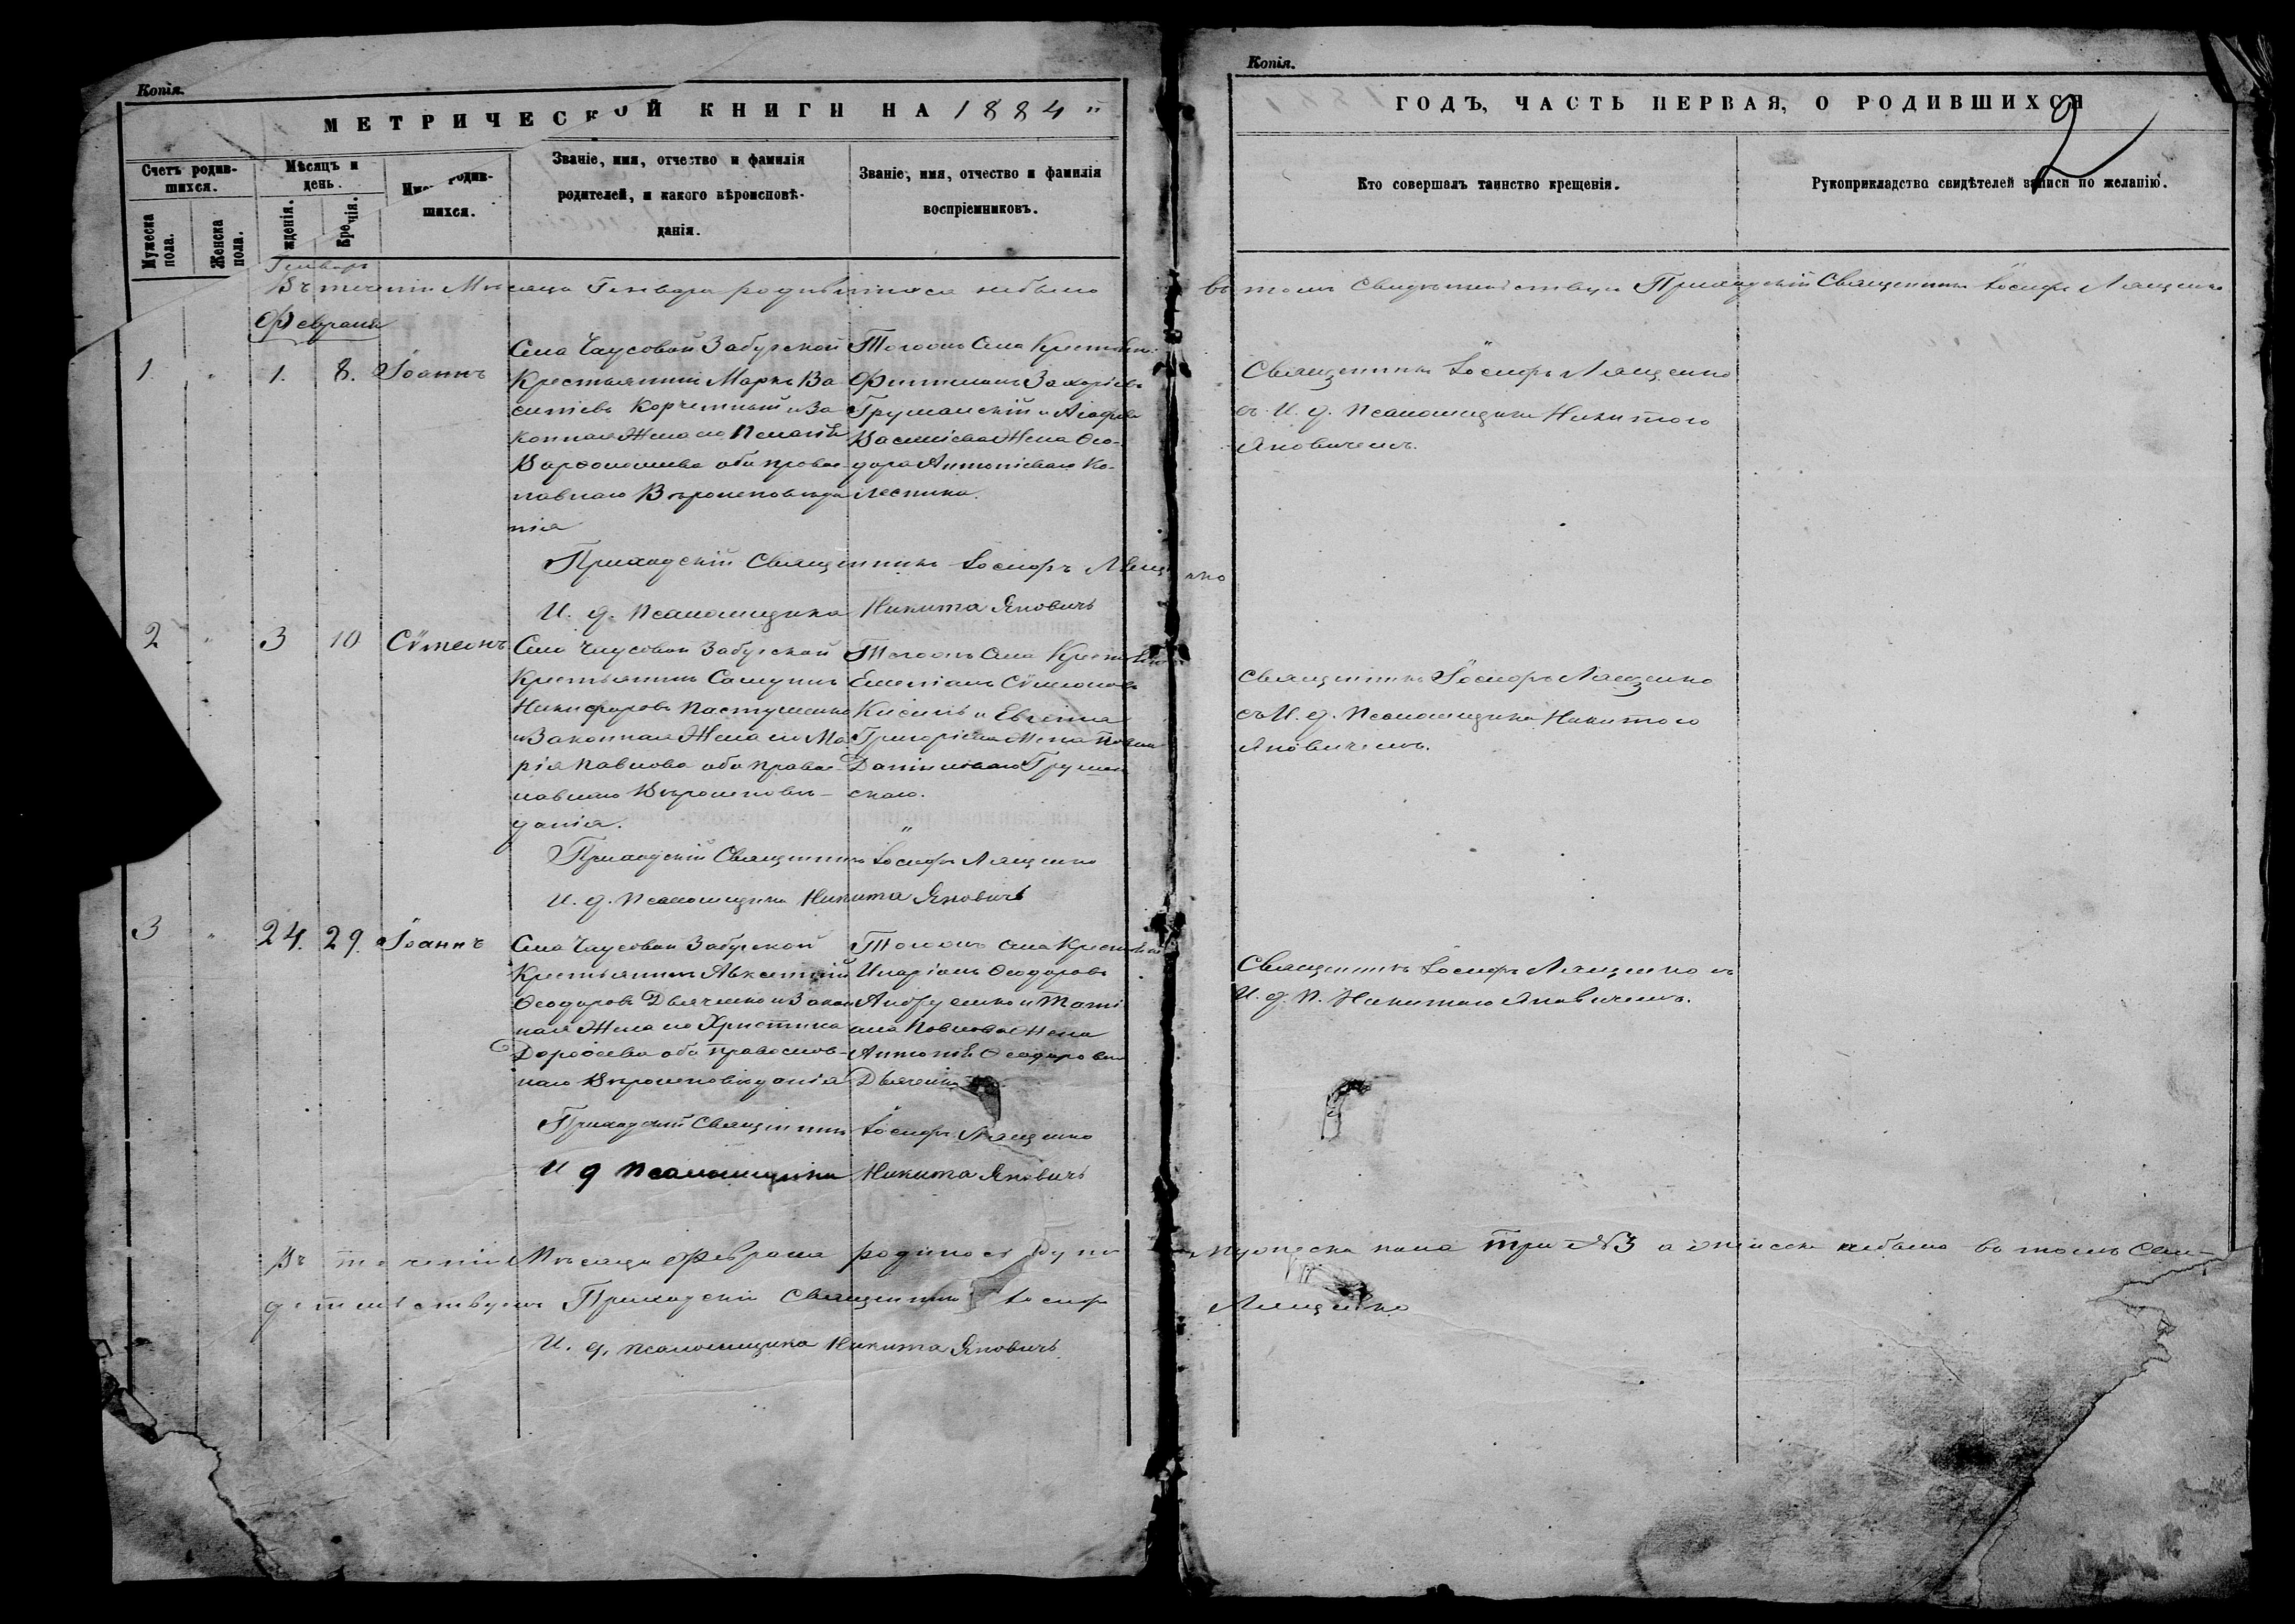 Копія.
МЕТРИЧЕСКОЙ КНИГИ НА 1884
Счетъ родив-
шихся.
Мѣсяцъ и
день.
родив-
шихся.
Званіе, имя, отчество и фамилія
родителей, и какого вѣроисповѣ-
данія.
Званіе, имя, отчество и фамилія
воспріемниковъ.
Мужеска
пола.
Женска
пола.
Генварь
Въ теченіи Мѣсяца Генваря родившихся небыло
Февраля
1. 1. 8. Іоаннъ
Села Чаусовой Забугской
Крестьянинъ Маркъ Ва
силіевъ Корчемный и За
конная Жена его Пелагія
Варѳоломеева оба право
славнаго Вѣроисповѣда
нія
Тогожъ Села Крестьян:
Филимонъ Захаріевъ
Груманскій и Агафія
Василіева Жена Ѳео-
дора Антоніеваго Ко-
лесника.
Приходскій Священникъ Іосифъ Лященко
И. д. Псаломщика Никита Яновичъ
2 3 10 Сѵмеонъ
Села Чаусовой Забугской
Крестьянинъ Самуилъ
Никифоровъ Пастушенко
и Законная Жена его Ма
рія Павлова оба право
славнаго Вѣроисповѣ-
данія.
Тогожъ Села Крестьян
Емеліанъ Сѵмеоновъ
Кисиль и Евгенія
Григоріева Жена
Даниловаго Груман
скаго.
Приходскій Священникъ Іосифъ Лященко
И. д. Псаломщика Никита Яновичъ
3 24. 29. Іоаннъ
Села Чаусовой Забугской
Крестьянинъ Авксентій
Ѳеодоровъ Дьяченко и Закон
ная Жена его Христина
Дороѳеева оба Православ-
наго Вѣроисповѣданія
Тогожъ Села Крестьян
Иларіонъ Ѳеодоровъ
Андрусенко и Таті
ана Павлова Жена
Антонія Ѳеодорова
Дьяченко
Приходскій Священникъ Іосифъ Лященко
И д Псаломщика Никита Яновичъ
Въ теченіи Мѣсяца Февраля родилось
дѣтельствуемъ Приходскій Священникъ Іосифъ
И. д. псаломщика Никита Яновичъ
Копія.
ГОДЪ, ЧАСТЬ ПЕРВАЯ, О РОДИВШИХСЯ
2
Кто совершалъ таинство крещенія.
Рукоприкладство свидѣтелей записи по желанію.
въ томъ Свидѣтельствуемъ Приходскій Священникъ Іосифъ Лященко
Священникъ Іосифъ Лященко
съ И. д. Псаломщика Никитою
Яновичемъ.
Священникъ Іосифъ Лященко
съ И. д. Псаломщика Никитою
Яновичемъ.
Священникъ Іосифъ Лященко съ
И. д. П. Никитою Яновичемъ.
Мужеска пола три №3 а женска небыло въ томъ Сви-
Лященко